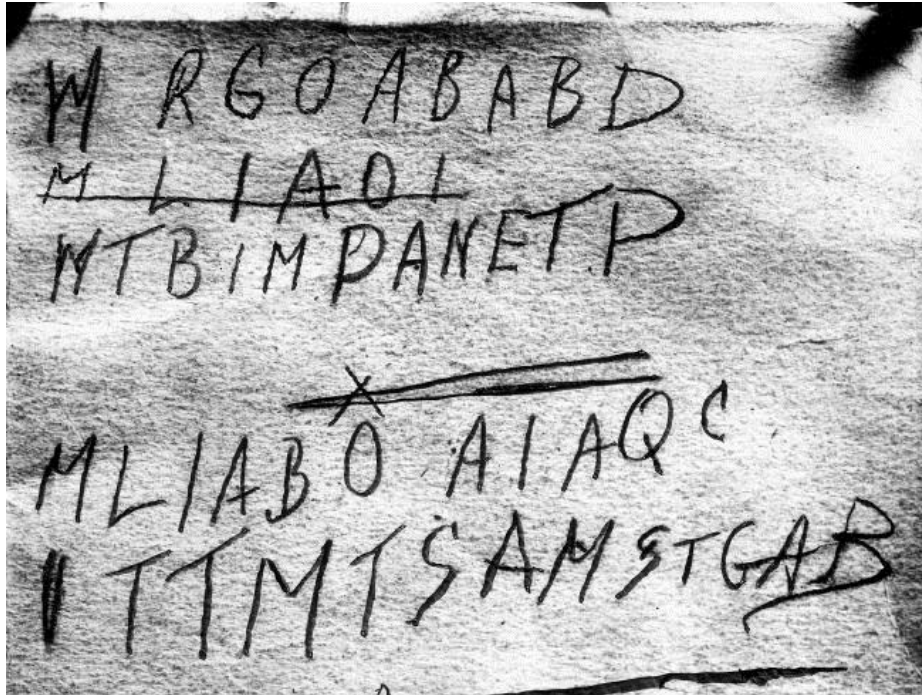 W R G O A B A B D
M L I A O I
W T B I M P A N E T . P
X
M L I A B O A I A Q C
I T T M T S A M S T G A B